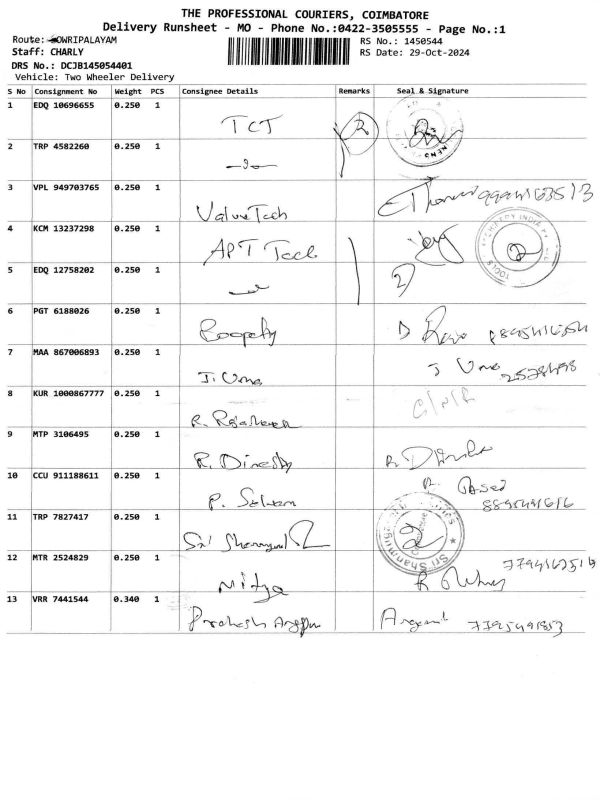 THE PROFESSIONAL COURIERS, COIMBATORE
Delivery Runsheet - MO - Phone No.:0422-3505555 - Page No.:1
Route: OWRIPALAYAM
RS No.: 1450544
Staff: CHARLY
RS Date: 29-Oct-2024
DRS No.: DCJB145054401
Vehicle: Two Wheeler Delivery
S No Consignment No Weight PCS Consignee Details Remarks Seal & Signature
1 EDQ 10696655 0.250 1 TCT
2 TRP 4582260 0.250 1
3 VPL 949703765 0.250 1 Value Tech
4 KCM 13237298 0.250 1 APT Tool
5 EDQ 12758202 0.250 1 2
6 PGT 6188026 0.250 1 Boopathy
7 MAA 867006893 0.250 1 J. Uma J Uma
8 KUR 1000867777 0.250 1 R.
9 MTP 3106495 0.250 1 R. Dinesh
10 CCU 911188611 0.250 1 P. Selvam
11 TRP 7827417 0.250 1 Sri Shanmuga
12 MTR 2524829 0.250 1 Nitya
13 VRR 7441544 0.340 1 Prakash